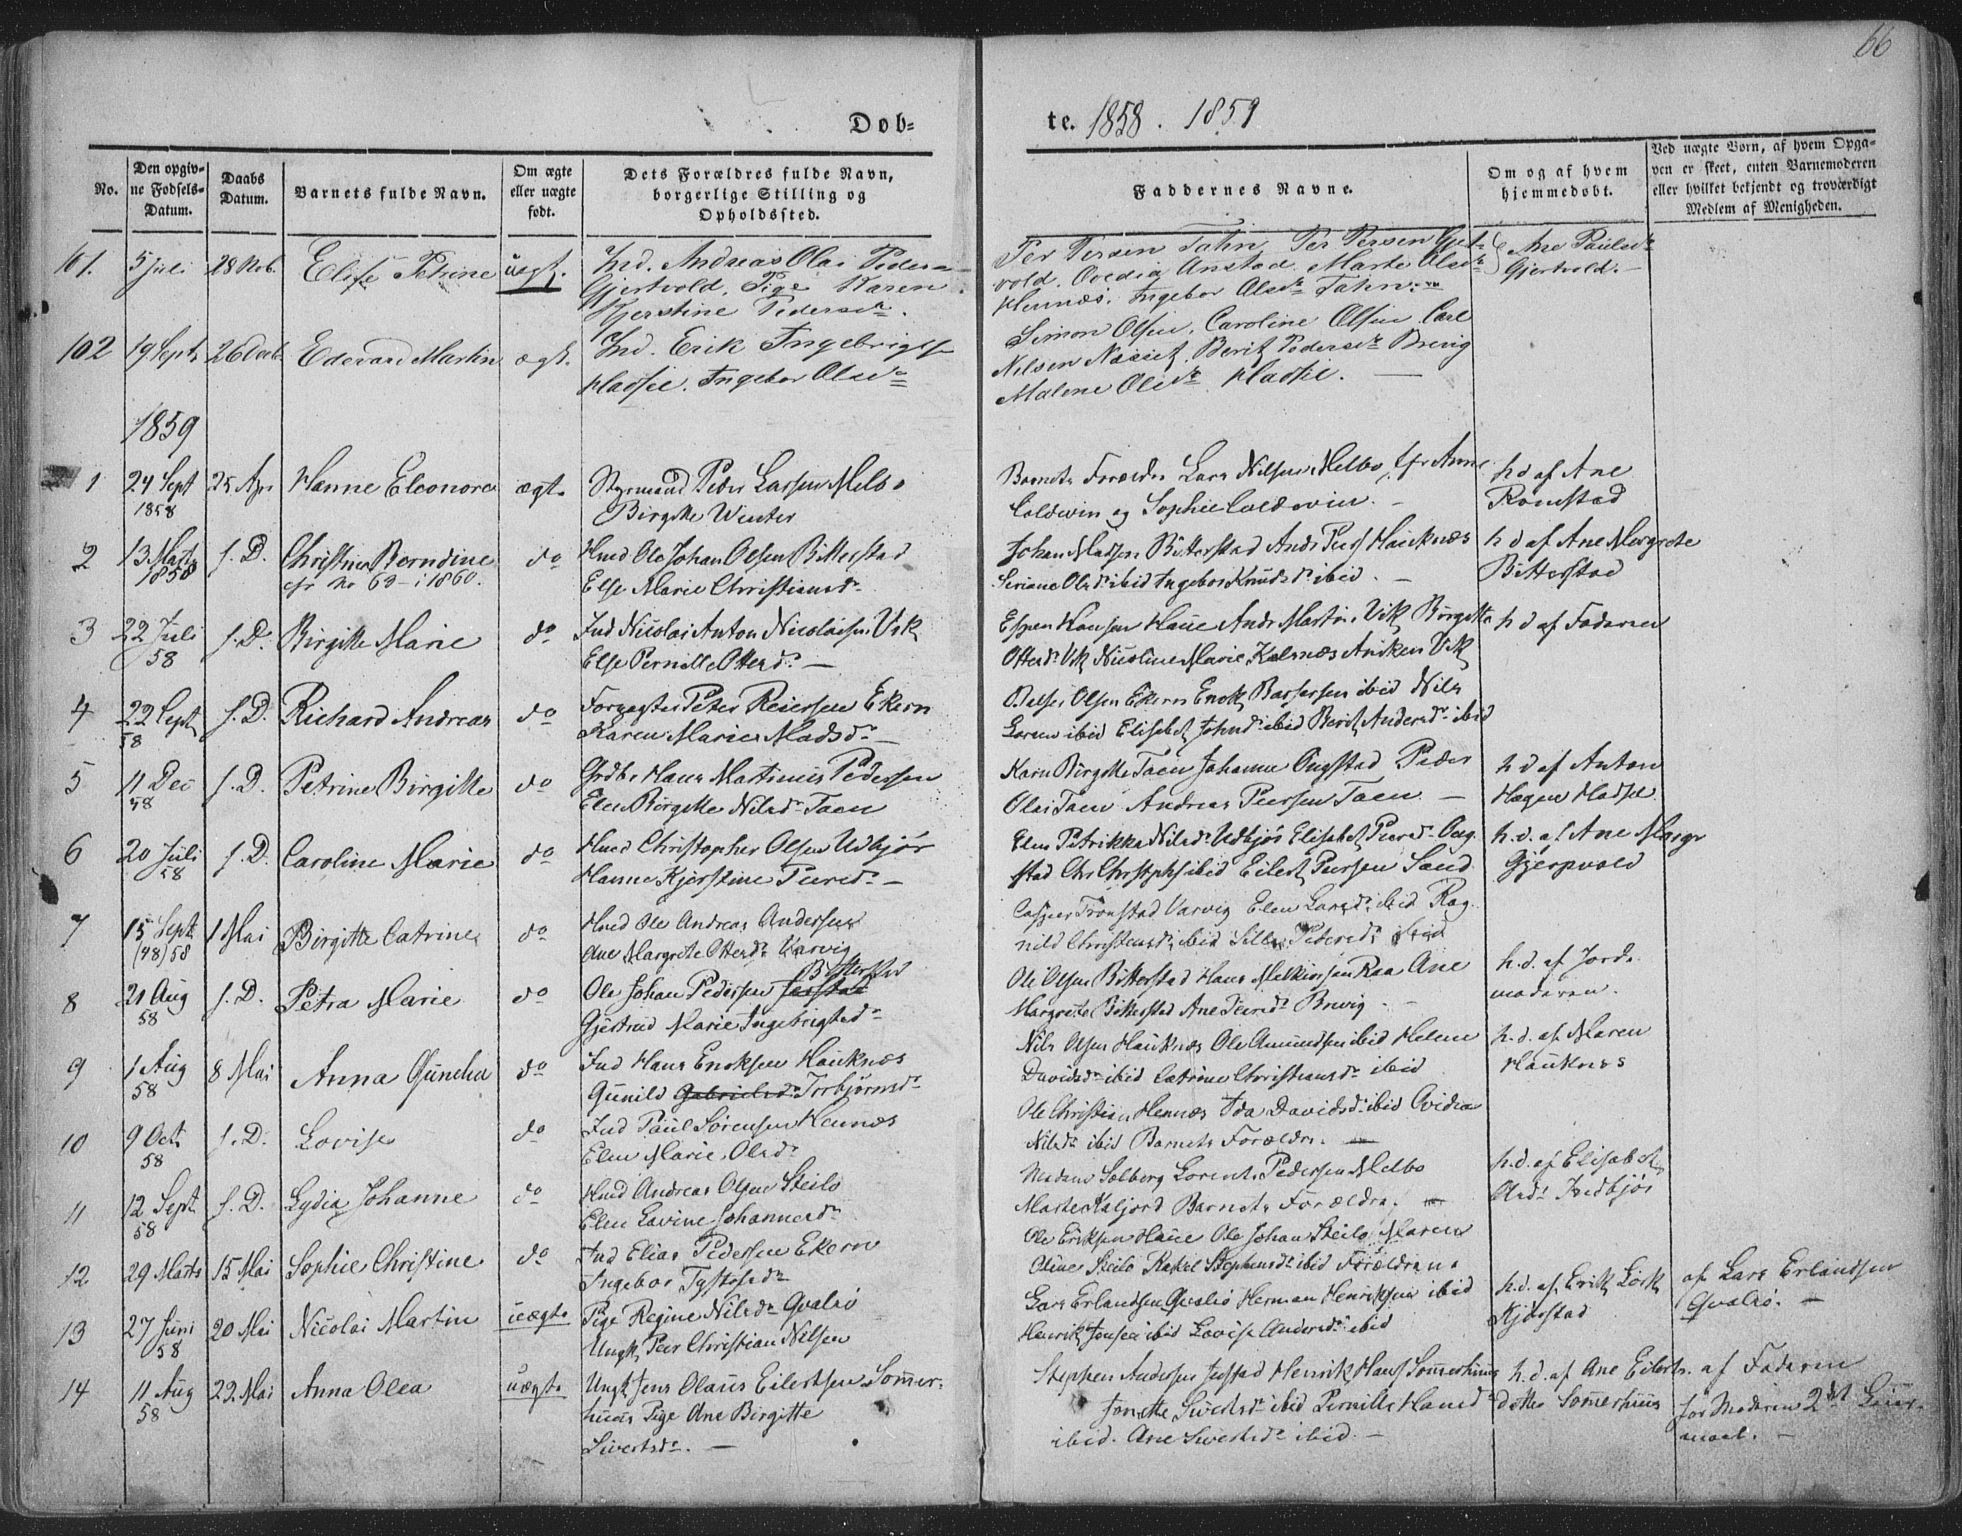 66
Døb= te. 1858. 1859
No.
Den opgiv-
ne Fødsels-
Datum.
Daabs
Datum.
Barnets fulde Navn.
Om ægte
eller uægte
født.
Dets Forældres fulde Navn,
borgerlige Stilling og
Opholdssted.
Faddernes Navne.
Om og af hvem
hjemmedøbt.
Ved uægte Børn, af hvem Opga-
ven er skeet, enten Barnemoderen
eller hvilket bekjendt og troværdigt
Medlem af Menigheden.
101. 5 Juli 28 Nob. Elise Petrine uægt. Ind. Andreas Olai Peders
Gjertvold. Pige Karen
Kjerstine Pedersdr.
Per Persen Tahn. Per Persen Gjet-
vold. Ovedia Anstad. Marte Olsdr
Hennes. Ingebor Olsdr Tahn.
Ane Paulsdr
Gjertvold.
102 19 Septr 26 Decb Edevard Martin ægt. Ind. Erik Ingebrigts
Hadsel. Ingebor Olsdr
Simon Olsen. Caroline Olsen. Carl
Nelsen Næsset. Berit Pedersdr Brevig
Malene Olsdr. Hadsel.
1859
1 24 Sept 25 Apr Hanne Eleonora ægte Styrmand Peder Larsen Melbo
1858 Birgitte Winter
Barnets Forældre Lars Nilsen Melbo, Jfr Anne
Coldevin og Sophie Coldevin.
h d af Ane
Romstad
2 13 Marts s. D. Christine Berndine do Hmd Ole Johan Olsen Bitterstad
1858 cfr no 69 i 1860. Else Marie Christiansdr
Johan Madsen Bitterstad Ands Peers Hauknæs
Seriane Olsdr ibid Ingebor Knudsdr ibid.
h d af Ane Margrete
Bitterstad
3 22 Juli s. D. Birgitte Marie do Ind Nicolai Anton Nicolaisen Vik
58 Else Pernille Ottersdr
Espen Hansen Haue Ands Martin Vik Birgitte
Ottersdr Vik Nicoline Marie Kalsnæs Aniken Vik
h d af Faderen
4 22 Sept s. D. Richard Andreas do Forpagter Peter Reiersen Ekern
58 Karen Marie Madsdr
Balser Olsen Ekern Enok Balsersen ibid Nils
Larsen ibid Elisabet Johnsdr ibid Berit Andersdr ibid
5 11 Dec s. D. Petrine Birgitte do Grdbr Hans Martinus Pedersen
58 Elen Birgitte Nilsdr Taen
Karn Birgitte Taen Johanna Ongstad Peder
Olai Taen Andreas Peersen Taen.
h d af Anton
Hagen Hadsel
6 20 Juli s. D. Caroline Marie do Hmd Christopher Olsen Udbjør
58 Hanne Kjerstine Peersdr
Elen Petrikka Nilsdr Udbjør Elisabet Peersdr Ong
stad Chr Chrstphs ibid Eilert Peersen Sand
h. d. af Ane Margr
Gjerpvold
7 15 Sept 1 Mai Birgitte Catrine do Hmd Ole Andreas Andersen
(48) 58 Ane Margrete Ottersdr Varvig
Casper Tronstad Varvig Elen Larsdr ibid Rag.
nild Christensdr ibid Sille Pedersdr ibid
8 21 Aug s. D. Petra Marie do Ole Johan Pedersen Jorstad Bitterstad
58 Gjertrud Marie Ingebrigtsdr
Ole Olsen Bitterstad Hans Melkiorsen Raa Ane
Margrete Bitterstad Ane Peersdr Brevig.
h. d. af Jord-
moderen.
9 1 Aug 8 Mai Anna Guncha do Ind Hans Enoksen Hauknæs
58 Gunild Gabrielsdr Torbjørnsdr
Nils Olsen Hauknæs Ole Amundsen ibid Helene
Davidsdr ibid Catrine Christiansdr ibid
h. d. af Maren
Hauknes
10 9 Oct s. D. Lovise do Ind Paul Sørensen Hennæs
58 Elen Marie Olsdr
Ole Christian Hennæs Ida Davidsdr ibid Ovidia
Nilsdr ibid Barnets Forældre.
11 12 Sept s. D. Lydia Johanne do Hmd Andreas Olsen Steilo
58 Elen Lavine Johannesdr
Madam Solberg Lorents Pedersen Melbo
Marte Kaljord Barnets Forældre.
h. d. af Elisabet
Olsdr
12 29 Marts 15 Mai Sophie Christine do Ind Elias Pedersen Ekern
Ingebor Tygesdr
Ole Eriksen Haue Ole Johan Steilo Maren
Oline Steilo Rakel Stephensdr ibid Forældrene
13 27 Juni 20 Mai Nicolai Martin uægte Pige Regine Nilsdr Qvalsø
58 Ungk Peer Christian Nilsen
Lars Erlandsen Qvalsø Herman Henriksen ibid
Henrik Jensen ibid Lovise Andersdr ibid
h. d. af Erik Løck
Kjørstad
af Lars Erlandsen
Qvalsø.
14 11 Aug 22 Mai Anna Olea uægte Ungk Jens Olaus Eilertsen Sommer-
58 huus Pige Ane Birgitte
Sivertsdr.
Stephen Andersen Jestad Henrik Hans Sommerhuus
Jonette Sivertsdr ibid Pernille Hansdr
ibid. Ane Sivertsdr ibid.
h. d. af Ane Eilerts-
datter Sommerhuus
af Faderen
for Moderen 2det Leier-
maal.